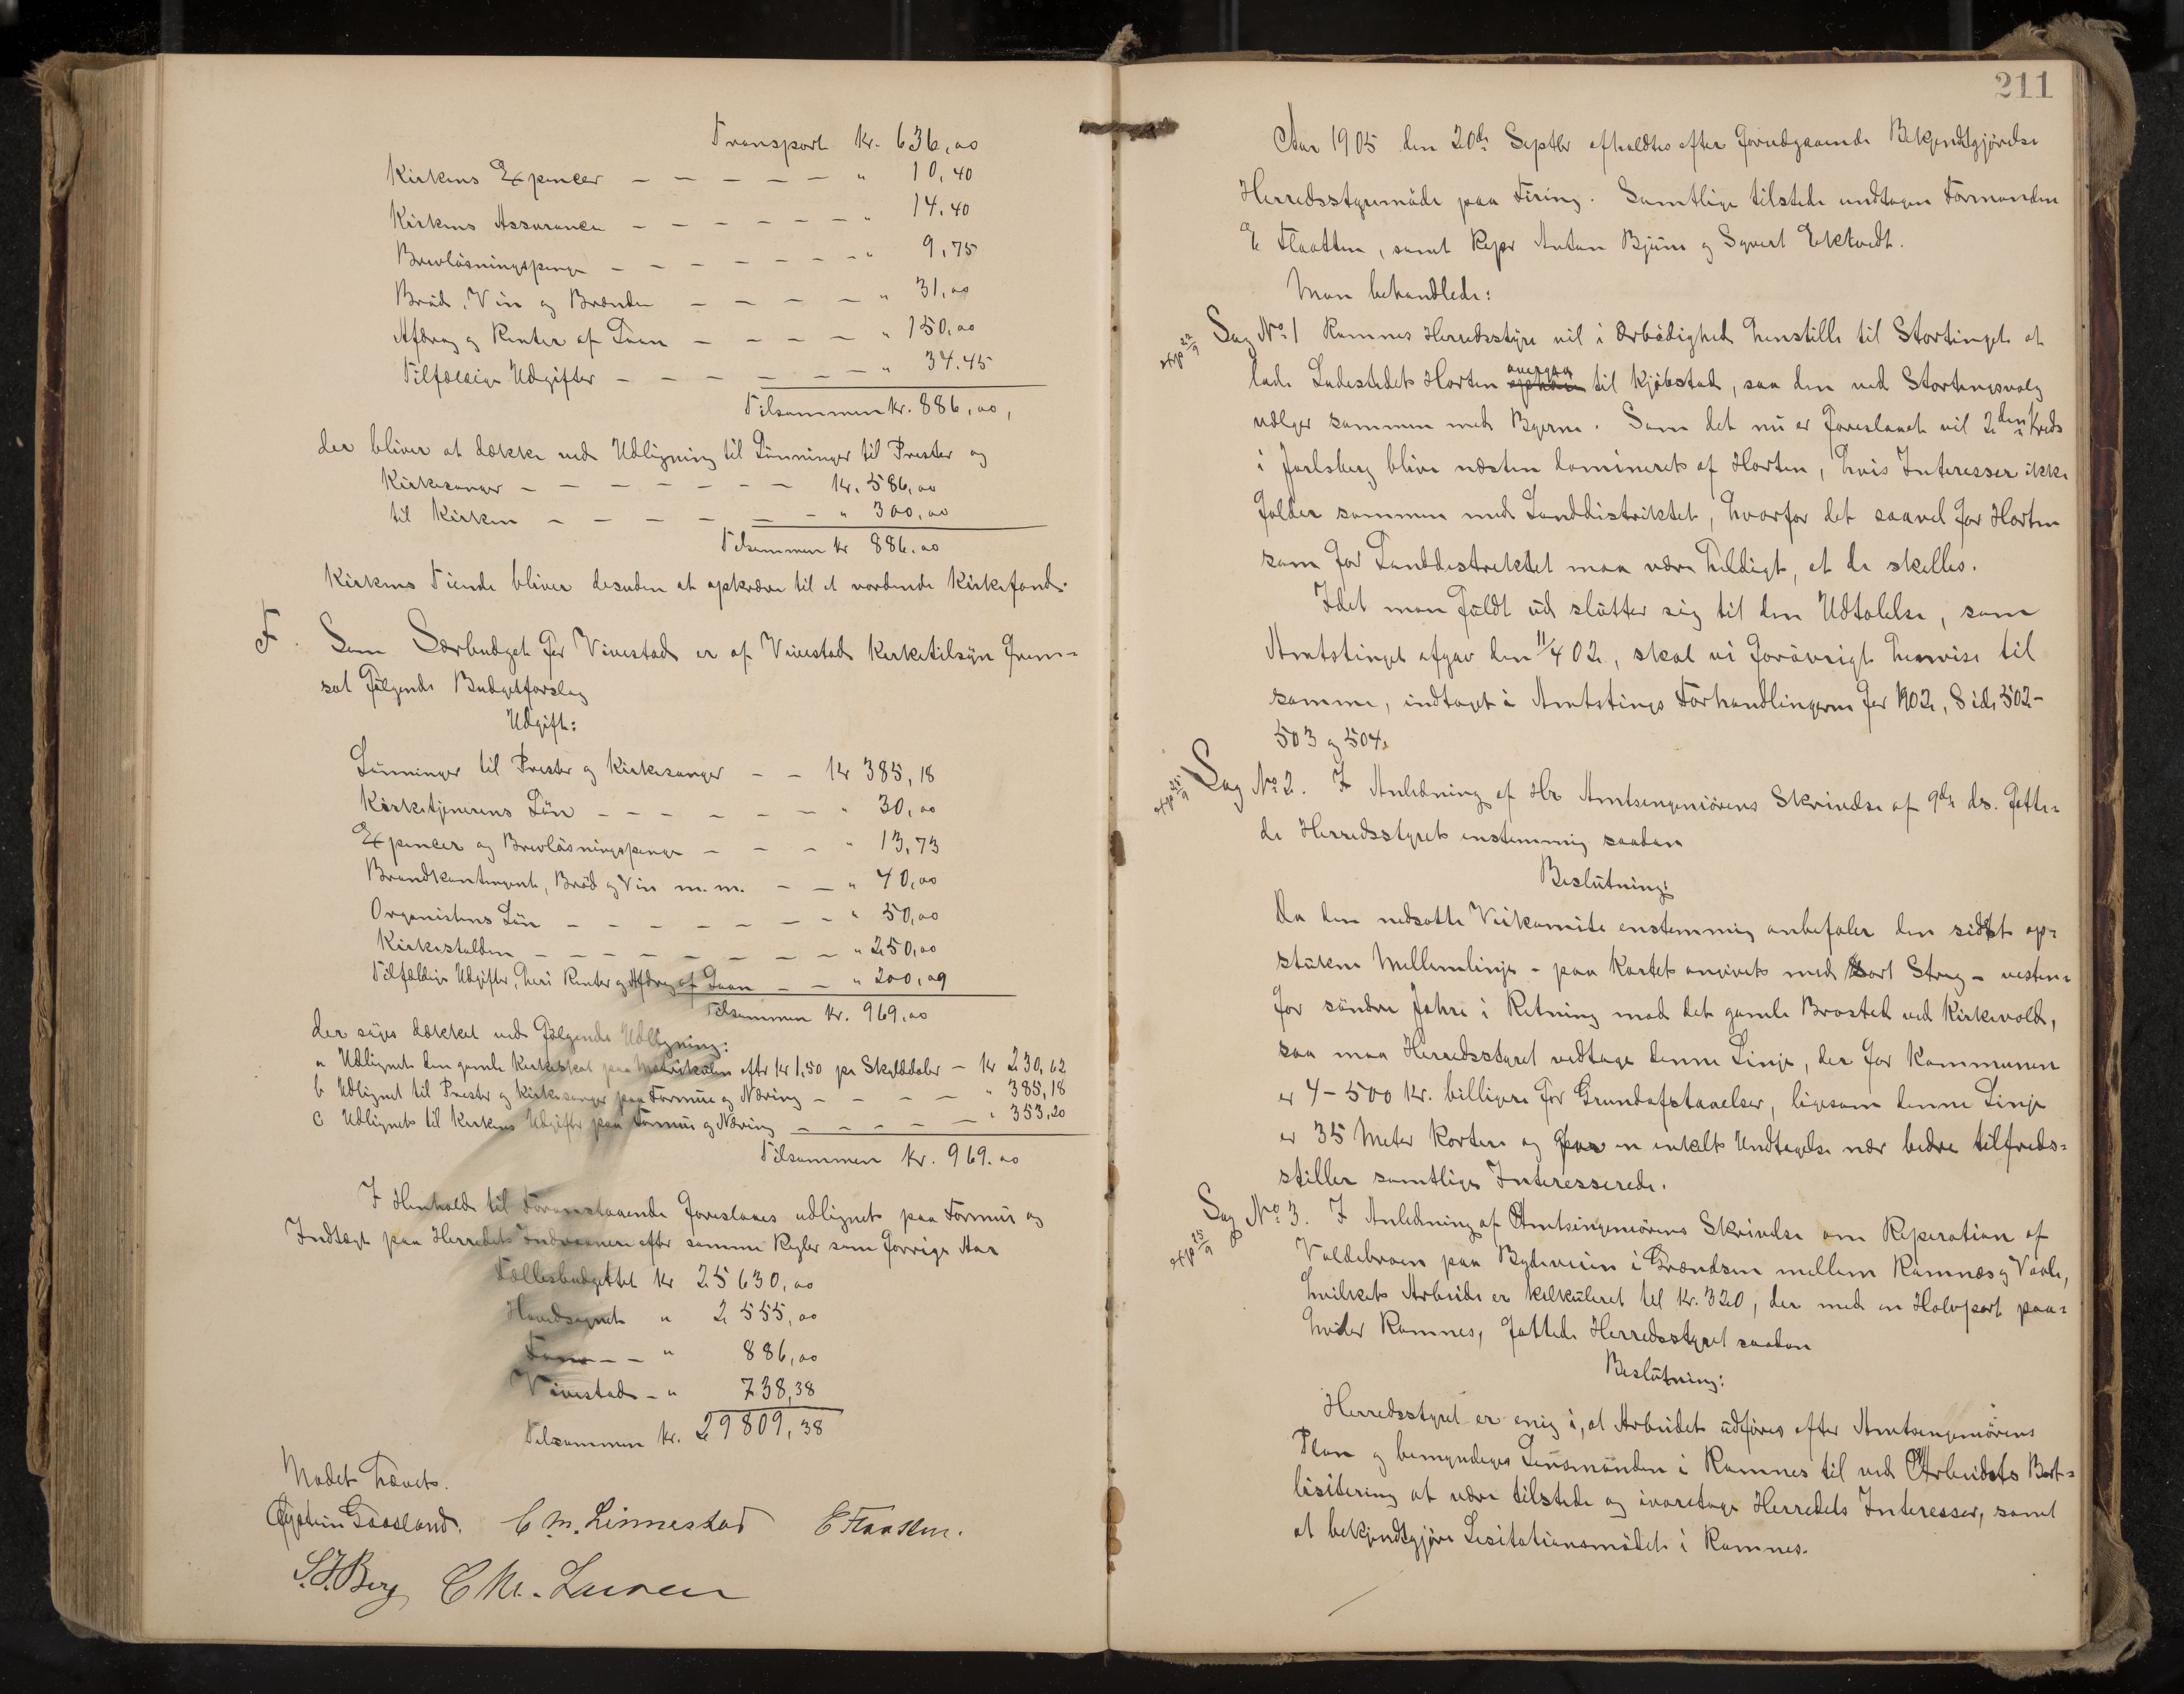 Transport Kr. 636,00
Kirkens Expencer – – – – – " 10,40
Kirkens Assurance – – – – – – " 14.40
Brevlösningspenge – – – – – – – " 9,75
Bröd, Vin og Brænde – – – – " 31,00
Afdrag og Renter af Laan – – – – " 150,00
Tilfældige Udgifter – – – – – – " 34.45
Tilsammen Kr. 886,00,
der bliver at dække ved Udligning til Lönninger til Prester og
Kirkesanger – – – – – – – Kr. 586,00
til Kirken – – – – – – " 300,00
Tilsammen Kr 886.00
Kirkens Tiende bliver desuden at opkræve til et vordende Kirkefond.
F. Som Særbudget for Vivestad er af Vivestad Kirketilsyn frem=
sat fölgende Budgetforslag
Udgift:
Lönninger til Prester og Kirkesanger – – Kr 385,18
Kirketjenerens Lön – – – – – – " 30,00
Expencer og Brevlösningspenge – – – " 13,73
Brandkontingent, Bröd og Vin m.m. – – " 40,00
Organistens Lön – – – – – – – " 50,00
Kirkestolden – – – – – – – – " 250,00
Tilfældige Udgifter, heri Renter og Afdrag af Laan – – " 200,09
Tilsammen Kr. 969.00
der söges dækket ved fölgende Udligning:
a Udlignet den gamle Kirkeskat paa Matrikulen efter Kr 1,50 pr Skylddaler – Kr 230,62
b Udlignet til Prester og Kirkesanger paa Formue og Næring – – – – " 385,18
c Udlignet til Kirkens Udgifter paa Formue og Næring – – – – – " 353,20
Tilsammen Kr. 969.00
I Henhold til Foranstaaende foreslaaes udlignet paa Formue og
Indtægt paa Herredets Indvaanere efter samme Regler som forrige Aar
Fællesbudgettet Kr 25630,00
Hovedsognet " 2555,00
Fons – – " 886,00
Vivestad – " 738,38
Tilsammen Kr. 29809,38
Mödet hævet.
Öystein Gaasland. C M. Linnestad E Flaatten.
S.J. Berg Chr. Larsen
211
Aar 1905 den 20de Septbr afholdtes efter forudgaaende Bekjendtgjörelse
Herredsstyremöde paa Firing. Samtlige tilstede undtagen Formanden
E Flaatten, samt Repr Anton Bjüne og Syvert Ektvedt.
Man behandlede:
Exp 22/9
Sag No 1 Ramnes Herredsstyre vil i Ærbödighed henstille til Stortinget at
overgaa
lade Ladestedet Horten til Kjöbstad, saa den ved Stortingsvalg
vælger sammen med Byerne. Som det nu er foreslaaet vil 2den Kreds
i Jarlsberg blive næsten domineret af Horten, hvis Interesser ikke
falder sammen med Landdistriktet, hvorfor det saavel for Horten
som for Landdestrektet maa være heldigt, at de skilles.
Idet man fuldt ud slutter sig til den Udtalelse, som
Amtstinget afgav den 11/4 02, skal vi forövrigt henvise til
samme, indtaget i Amtstings Forhandlingerne for 1902, Side 502-
503 og 504.
Exp 25/9
Sag No 2. I Anledning af Hr Amtsingeniörens Skrivelse af 9de ds. fatte=
de Herredsstyret enstemmig saadan
Beslutning:
Da den nedsatte Veikomite enstemmig anbefaler den sidst op=
stukne Mellemlinje – paa Kartet angivet med sort Streg – vesten=
for söndre Jahre i Retning mod det gamle Brosted ved Kirkevold,
saa maa Herredsstyret vedtage denne Linje, der for Kommunen
er 4–500 Kr. billigere for Grundafstaaelser, ligesom denne Linje
er 35 Meter Kortere og paa en enkelt Undtagelse nær bedre tilfreds=
stiller samtlige Interesserede.
Exp 25/9
Sag No 3. I Anledning af Amtsingeniörens Skrivelse om Reperation af
Valdebroen paa Bydeveien i Grændsen mellem Ramnes og Vaale,
hvilket Arbeide er kalkuleret til Kr. 320, der med en Halvpart paa=
hviler Ramnes, fattede Herredsstyret saadan
Beslutning:
Herredsstyret er enig i, at Arbeidet udföres efter Amtsingeniörens
Plan og bemyndiges Lensmanden i Ramnes til ved Arbeidets Bort=
lisitering at være tilstede og ivaretage Herredets Interesser, samt
at bekjendtgjöre Lisitationsmödet i Ramnes.